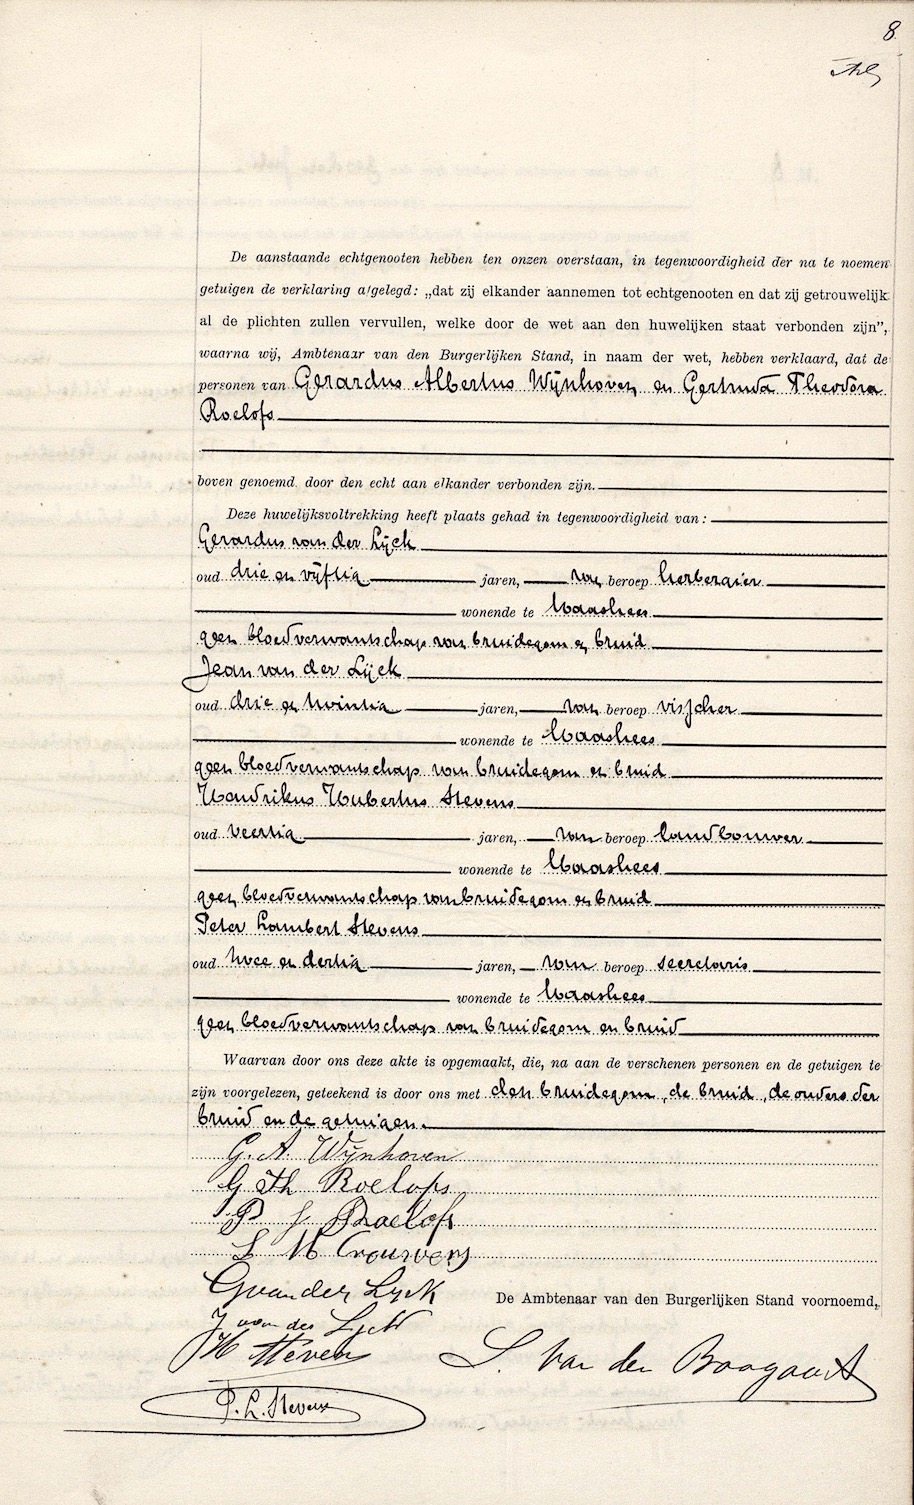 8
De aanstaande echtgenooten hebben ten onzen overstaan, in tegenwoordigheid der na te noemen
getuigen de verklaring afgelegd: „dat zij elkander aannemen tot echtgenooten en dat zij getrouwelijk
al de plichten zullen vervullen, welke door de wet aan den huwelijken staat verbonden zijn”,
waarna wij, Ambtenaar van den Burgerlijken Stand, in naam der wet, hebben verklaard, dat de
personen van Gerardus Albertus Wijnhoven en Gertruda Theodora
Roelofs
boven genoemd, door den echt aan elkander verbonden zijn.
Deze huwelijksvoltrekking heeft plaats gehad in tegenwoordigheid van:
Gerardus van der Lijck
oud drie en vijftig jaren, van beroep herbergier
wonende te Maashees
geen bloedverwantschap van bruidegom en bruid
Jean van der Lijck
oud drie en twintig jaren, van beroep visscher
wonende te Maashees
geen bloedverwantschap van bruidegom en bruid
Handrikus Hubertus Stevens
oud veertig jaren, van beroep landbouwer
wonende te Maashees
geen bloedverwantschap van bruidegom en bruid
Peter Lambert Stevens
oud twee en dertig jaren, van beroep secretaris
wonende te Maashees
geen bloedverwantschap van bruidegom en bruid
Waarvan door ons deze akte is opgemaakt, die, na aan de verschenen personen en de getuigen te
zijn voorgelezen, geteekend is door ons met den bruidegom, de bruid, de ouders der
bruid en de getuigen.
G. A Wijnhoven
G Th Roelofs
P J Roelofs
L M
G van der Lyck
J van der Lyck
H Steven
De Ambtenaar van den Burgerlijken Stand voornoemd,
L. Van den Boogaart
P. L. Stevens